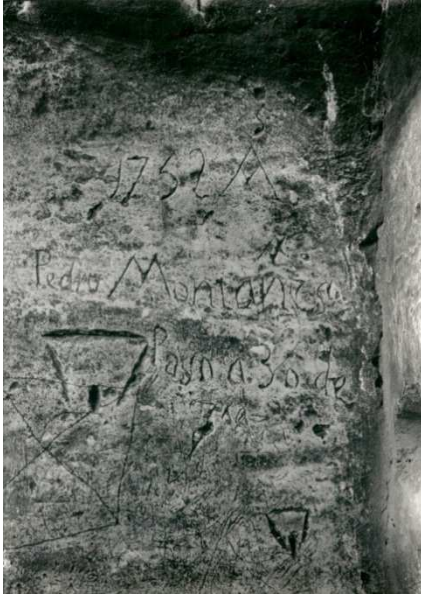 1752 A
Pedro Montañesa
Paso a 30 de